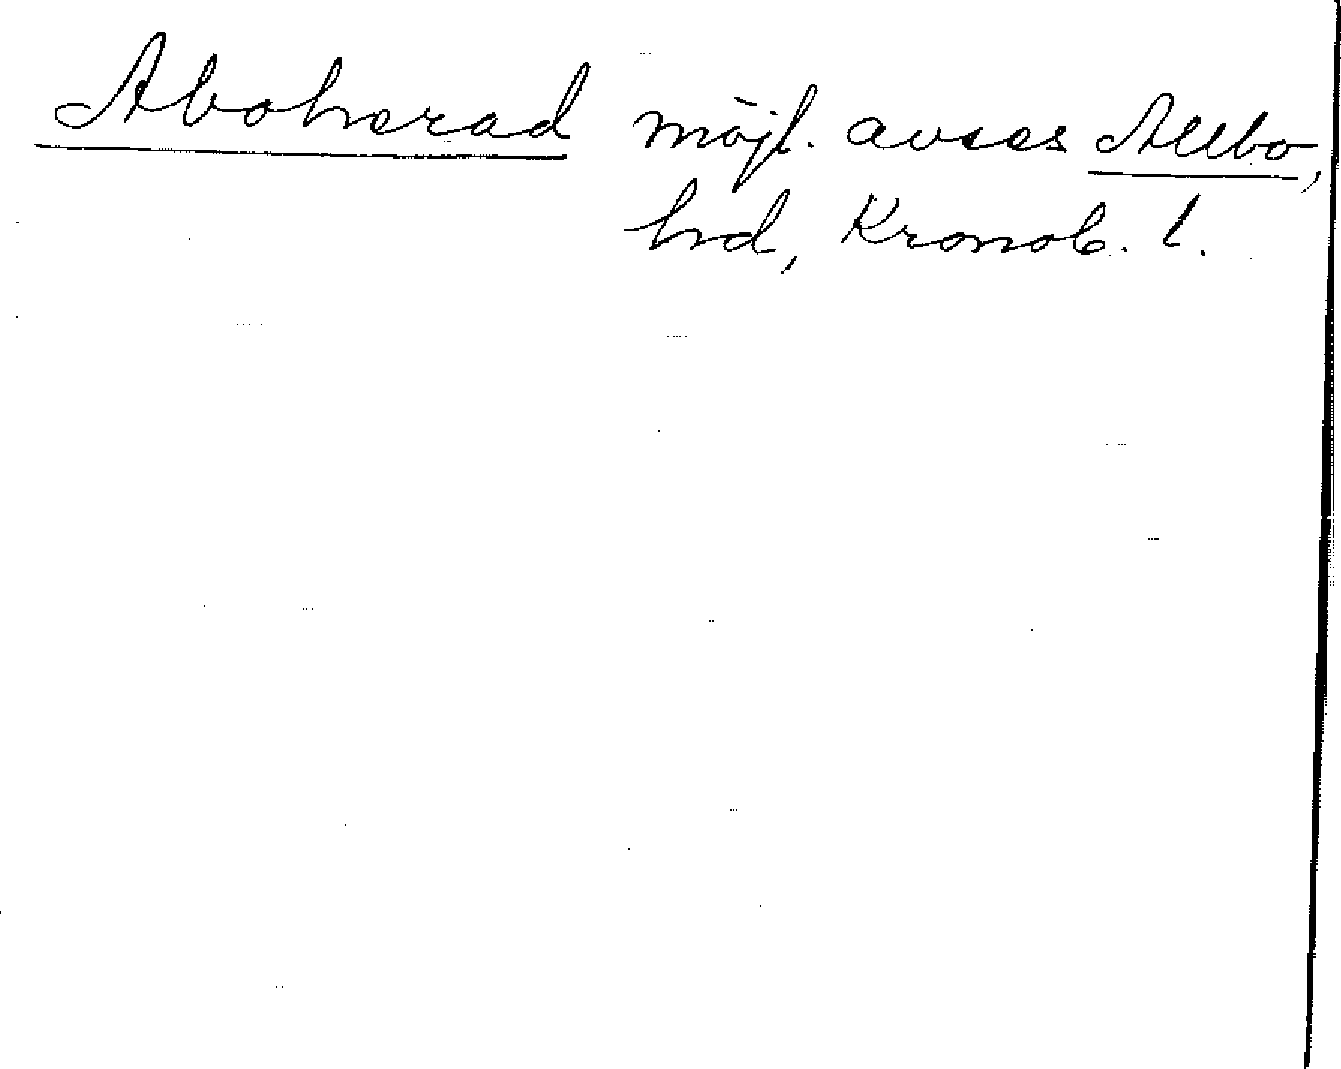 Aboherad möjl. avses Allbo,
hd, Kronob. l.